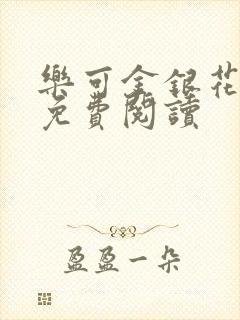 樂可金銀花
免費閱讀
盈盈一朵